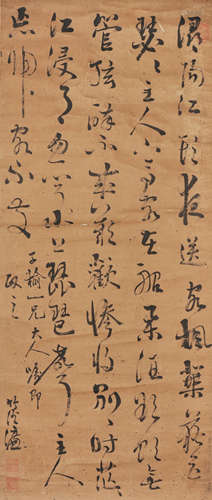 潯陽江頭夜送客楓葉荻花
瑟瑟主人下馬客在船舉酒欲飲無
管絃醉不成歡慘將別別時茫
江浸月忽聞水上琵琶聲主人
忘歸客不發
子榆一兄大人囑即
政之